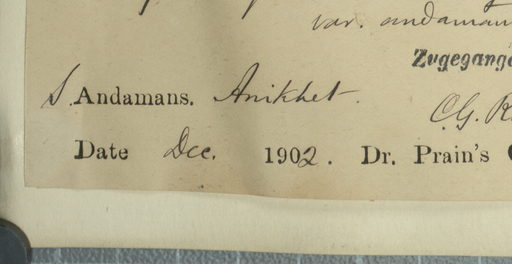 var. andaman
Zugegange
S. Andamans. Anikhet.
C.G. R
Date Dec. 1902. Dr. Prain's